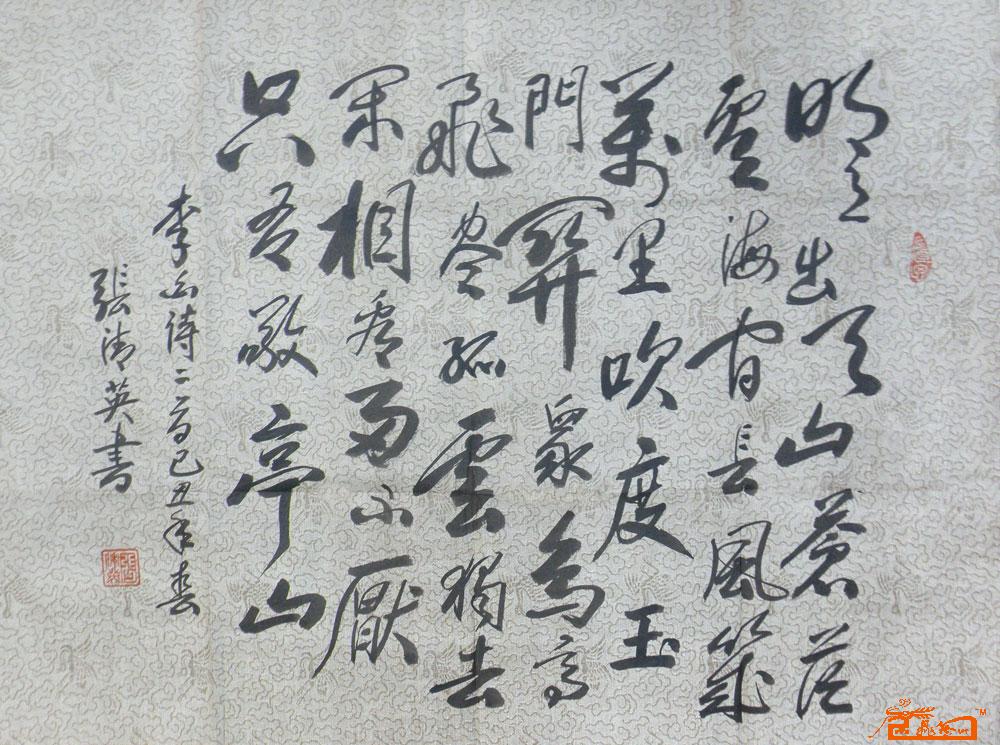 明月出天山蒼茫
雲海間長風幾
萬里吹度玉
門關眾鳥高
飛盡孤雲獨去
閑相看兩不厭
只有敬亭山
李白詩二首己丑年春
張清英書